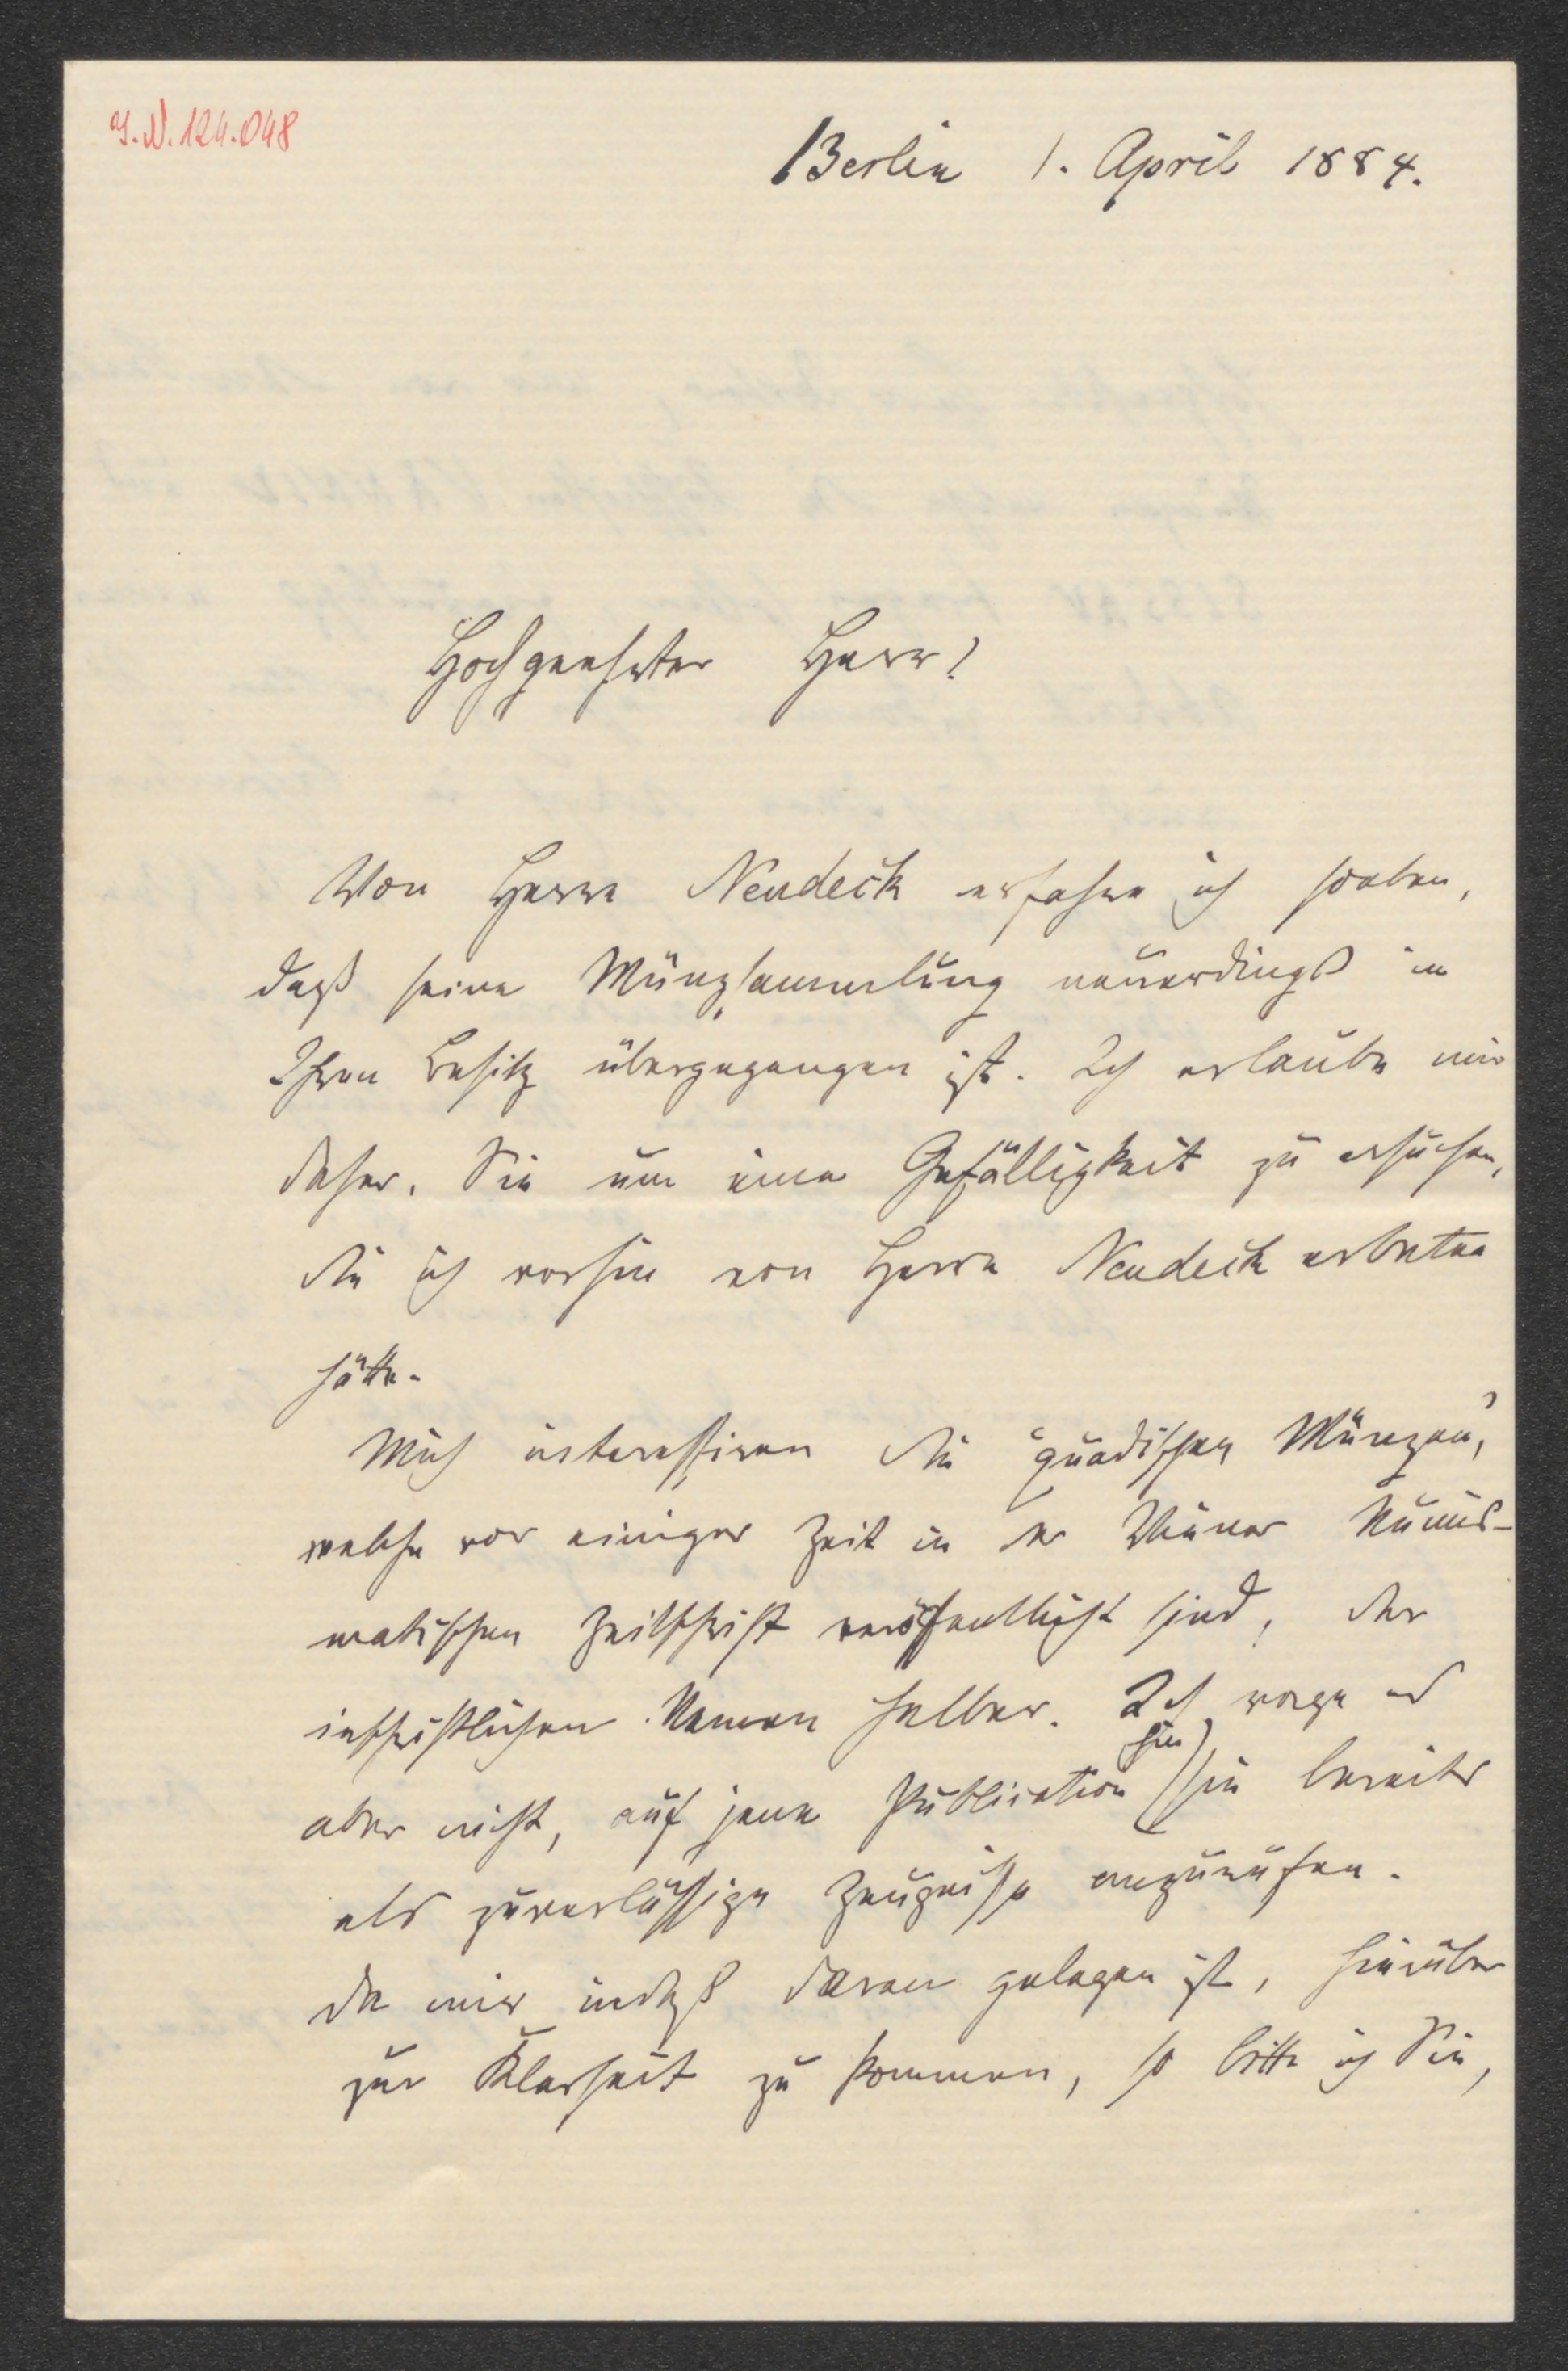 I.N. 124.048
Berlin 1. April 1884.
Hochgeehrter Herr!
Von Herrn Neudeck erfahre ich soeben,
daß seine Münzsammlung neuerdings in
Ihren Besitz übergegangen ist. Ich erlaube mir
daher, Sie um eine Gefälligkeit zu ersuchen,
die ich vorhin von Herrn Neudeck erbeten
hätte.
Mich interessiren die "quadischen Münzen",
welche vor einiger Zeit in der Wiener Numis-
matischen Zeitschrift veröffentlicht sind, der
inschriftlichen Namen halber. Ich wage es
aber nicht, auf jene Publication hin sie bereits
als zuverlässige Zeugnisse anzurufen.
Da mir indeß daran gelegen ist, hierüber
zur Klarheit zu kommen, so bitte ich Sie,